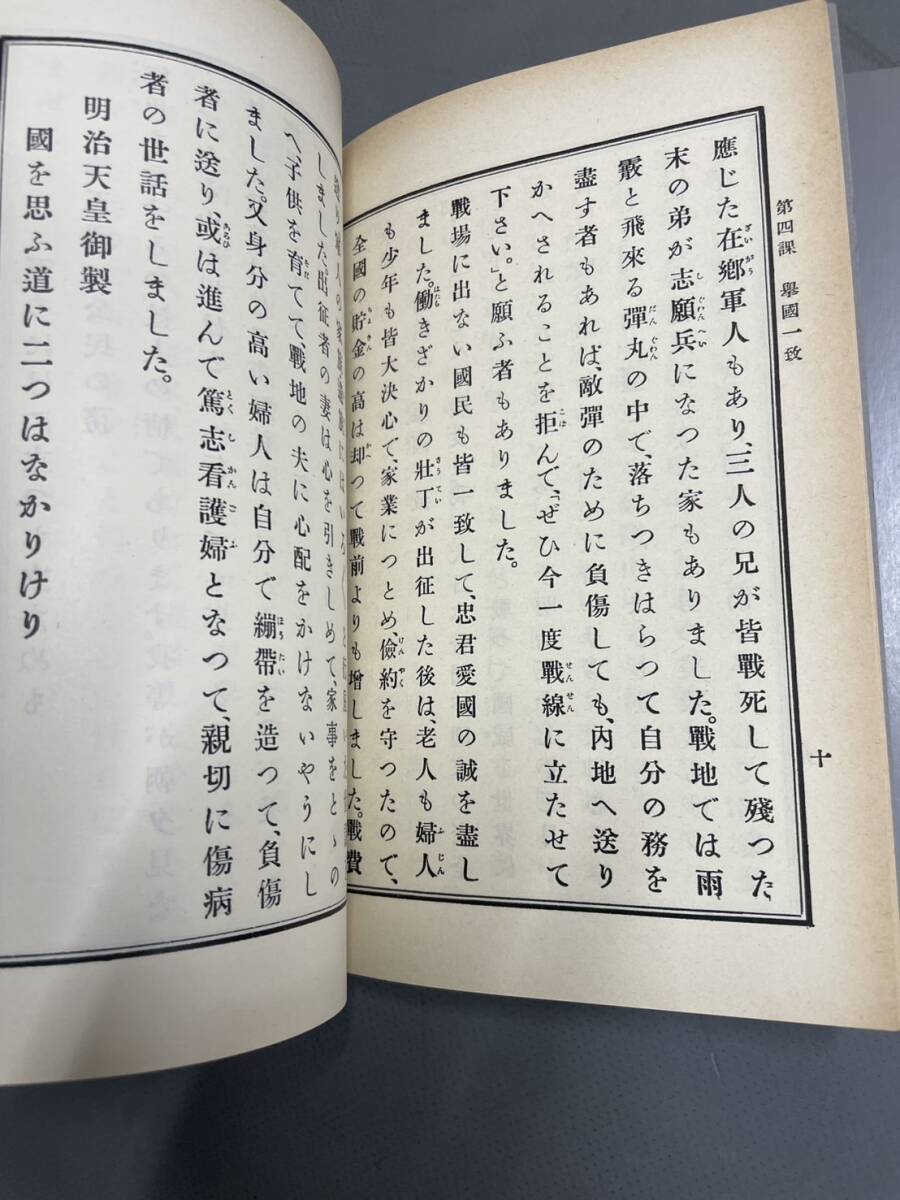 第四課　擧國一致
十
應じた在鄕軍人もあり、三人の兄が皆戰死して殘つた
末の弟が志願兵になつた家もありました。戰地では雨
霰と飛來る彈丸の中で、落ちつきはらつて自分の務を
盡す者もあれば、敵彈のために負傷しても、內地へ送り
かへされることを拒んで、「ぜひ今一度戰線に立たせて
下さい。」と願ふ者もありました。
戰場に出ない國民も皆一致して、忠君愛國の誠を盡し
ました。働きざかりの壯丁が出征した後は、老人も婦人
も少年も皆大決心で、家業につとめ、儉約を守つたので、
全國の貯金の高は却つて戰前よりも增しました。戰費
しました。出征者の妻は心を引きしめて、家事をとゝの
へ子供を育てて、戰地の夫に心配をかけないやうにし
ました。又身分の高い婦人は自分で繃帶を造つて、負傷
者に送り、或は進んで篤志看護婦となつて、親切に傷病
者の世話をしました。
明治天皇御製
國を思ふ道に二つはなかりけり